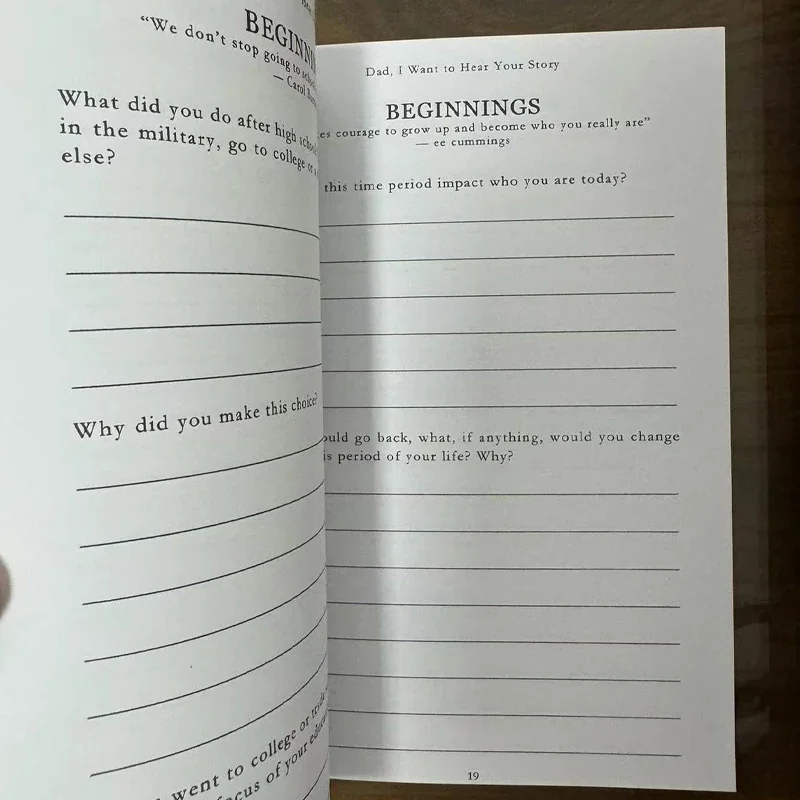 BEGINN
“We don’t stop going to
— Carol
What did you do after high
in the military, go to college or
else?
Why did you make this choice?
went to college or
focus of your
Dad, I Want to Hear Your Story
BEGINNINGS
es courage to grow up and become who you really are”
— ee cummings
this time period impact who you are today?
ould go back, what, if anything, would you change
is period of your life? Why?
19